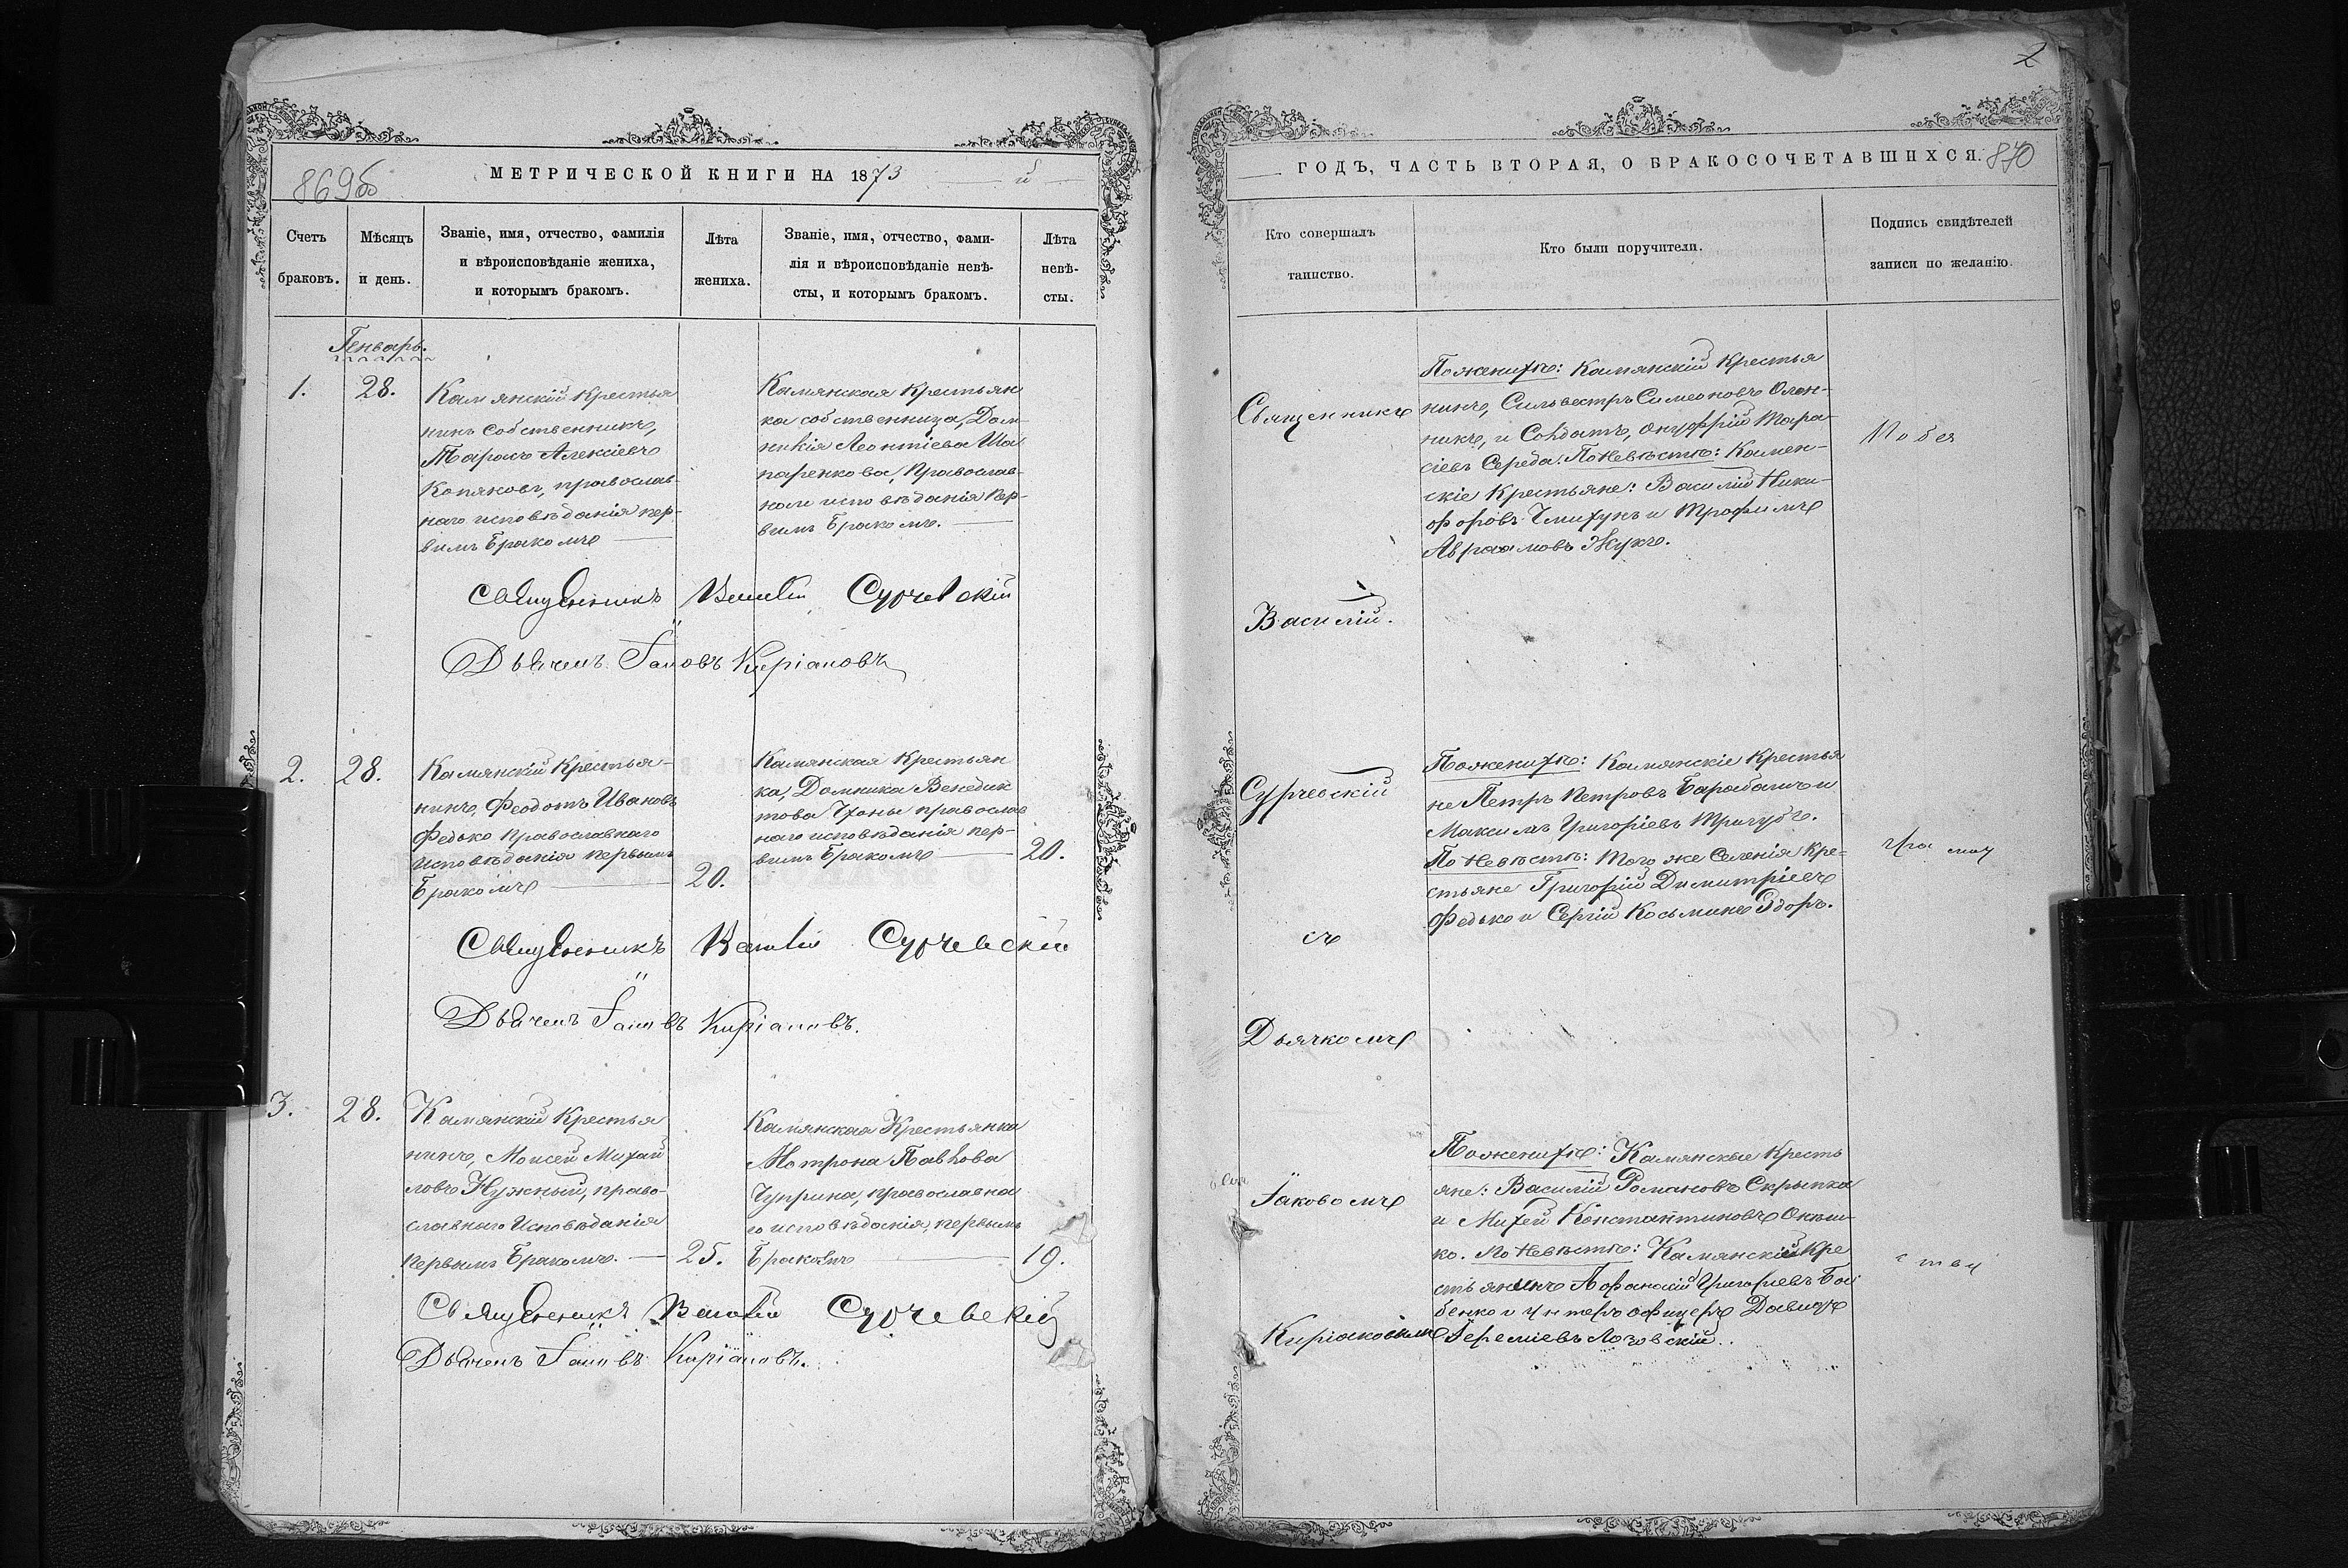 869об
МЕТРИЧЕСКОЙ КНИГИ НА 1873 й
Счетъ
браковъ.
Мѣсяцъ
и день.
Званіе, имя, отчество, фамилія
и вѣроисповѣданіе жениха,
и которымъ бракомъ.
Лѣта
жениха.
Званіе, имя, отчество, фами-
лія и вѣроисповѣданіе невѣ-
сты, и которымъ бракомъ.
Лѣта
невѣ-
сты.
Генварь.
1.
28.
Камянскій Крестья
нинъ Собственникъ,
Тарасъ Алексіевъ
Копяковъ, православ-
наго исповѣданія пер-
вимъ Бракомъ
Камянская Крестьян
ка собственница, Дом-
никія Леонтіева Ша
паренкова, Православ-
ного исповѣданія Пер-
вимъ Бракомъ.
Священникъ Василій Сурчевскій
Дьячекъ Іаковъ Киріаковъ
2.
28.
Камянскій Крестья-
нинъ, Феодотъ Ивановъ
Федько Православнаго
Исповѣданія Первымъ
Бракомъ
20.
Камянская Крестьян
ка, Домника Венедик
това православ
наго исповѣданія пер-
вимъ Бракомъ
20.
Священникъ Василій Сурчевскій
Дьячекъ Іаковъ Киріаковъ.
3.
28.
Камянскій Крестья
нинъ, Моисей Михай
ловъ Нужный, право-
славнаго Исповѣданія
Первымъ Бракомъ.
25.
Камянская Крестьянка
Мотрона Павлова
Чуприна, православна
го исповѣданія, первымъ
Бракомъ
19.
Священникъ Василій Сурчевскій
Дьячекъ Іаковъ Киріаковъ.
2
ГОДЪ, ЧАСТЬ ВТОРАЯ, О БРАКОСОЧЕТАВШИХСЯ. 870
Кто совершалъ
таинство.
Кто были поручители.
Подпись свидѣтелей
записи по желанію.
Священникъ
Василій.
Сурчевскій
съ
Дьячкомъ
Іаковомъ
Киріаковымъ
По женихѣ: Камянскій Крестья
нинъ, Сильвестръ Симеоновъ Олон-
никъ, и Солдатъ, Онуффрій Тара-
сіевъ Середа. По Невѣстѣ: Камен-
скіе Крестьяне: Василій Ники-
форовъ и Трофимъ
Авраамовъ Жукъ.
По женихѣ: Камянскіе Крестья
не Петръ Петровъ Барабашъ и
Максимъ Григоріевъ Тригубъ.
По Невѣстѣ: Того же Селенія Кре-
стьяне Григорій Димитріевъ
Федько и Сергій Косьминъ
По женихѣ: Камянскые Кресть
яне: Василій Романовъ Скрыпка
и Михей Константиновъ
ко. По Невѣстѣ: Камянскій Кре
стьянинъ Афанасій Григоріевъ Бой
бенко и унтеръ офицеръ Давидъ
Іереміевъ Лозовскій.